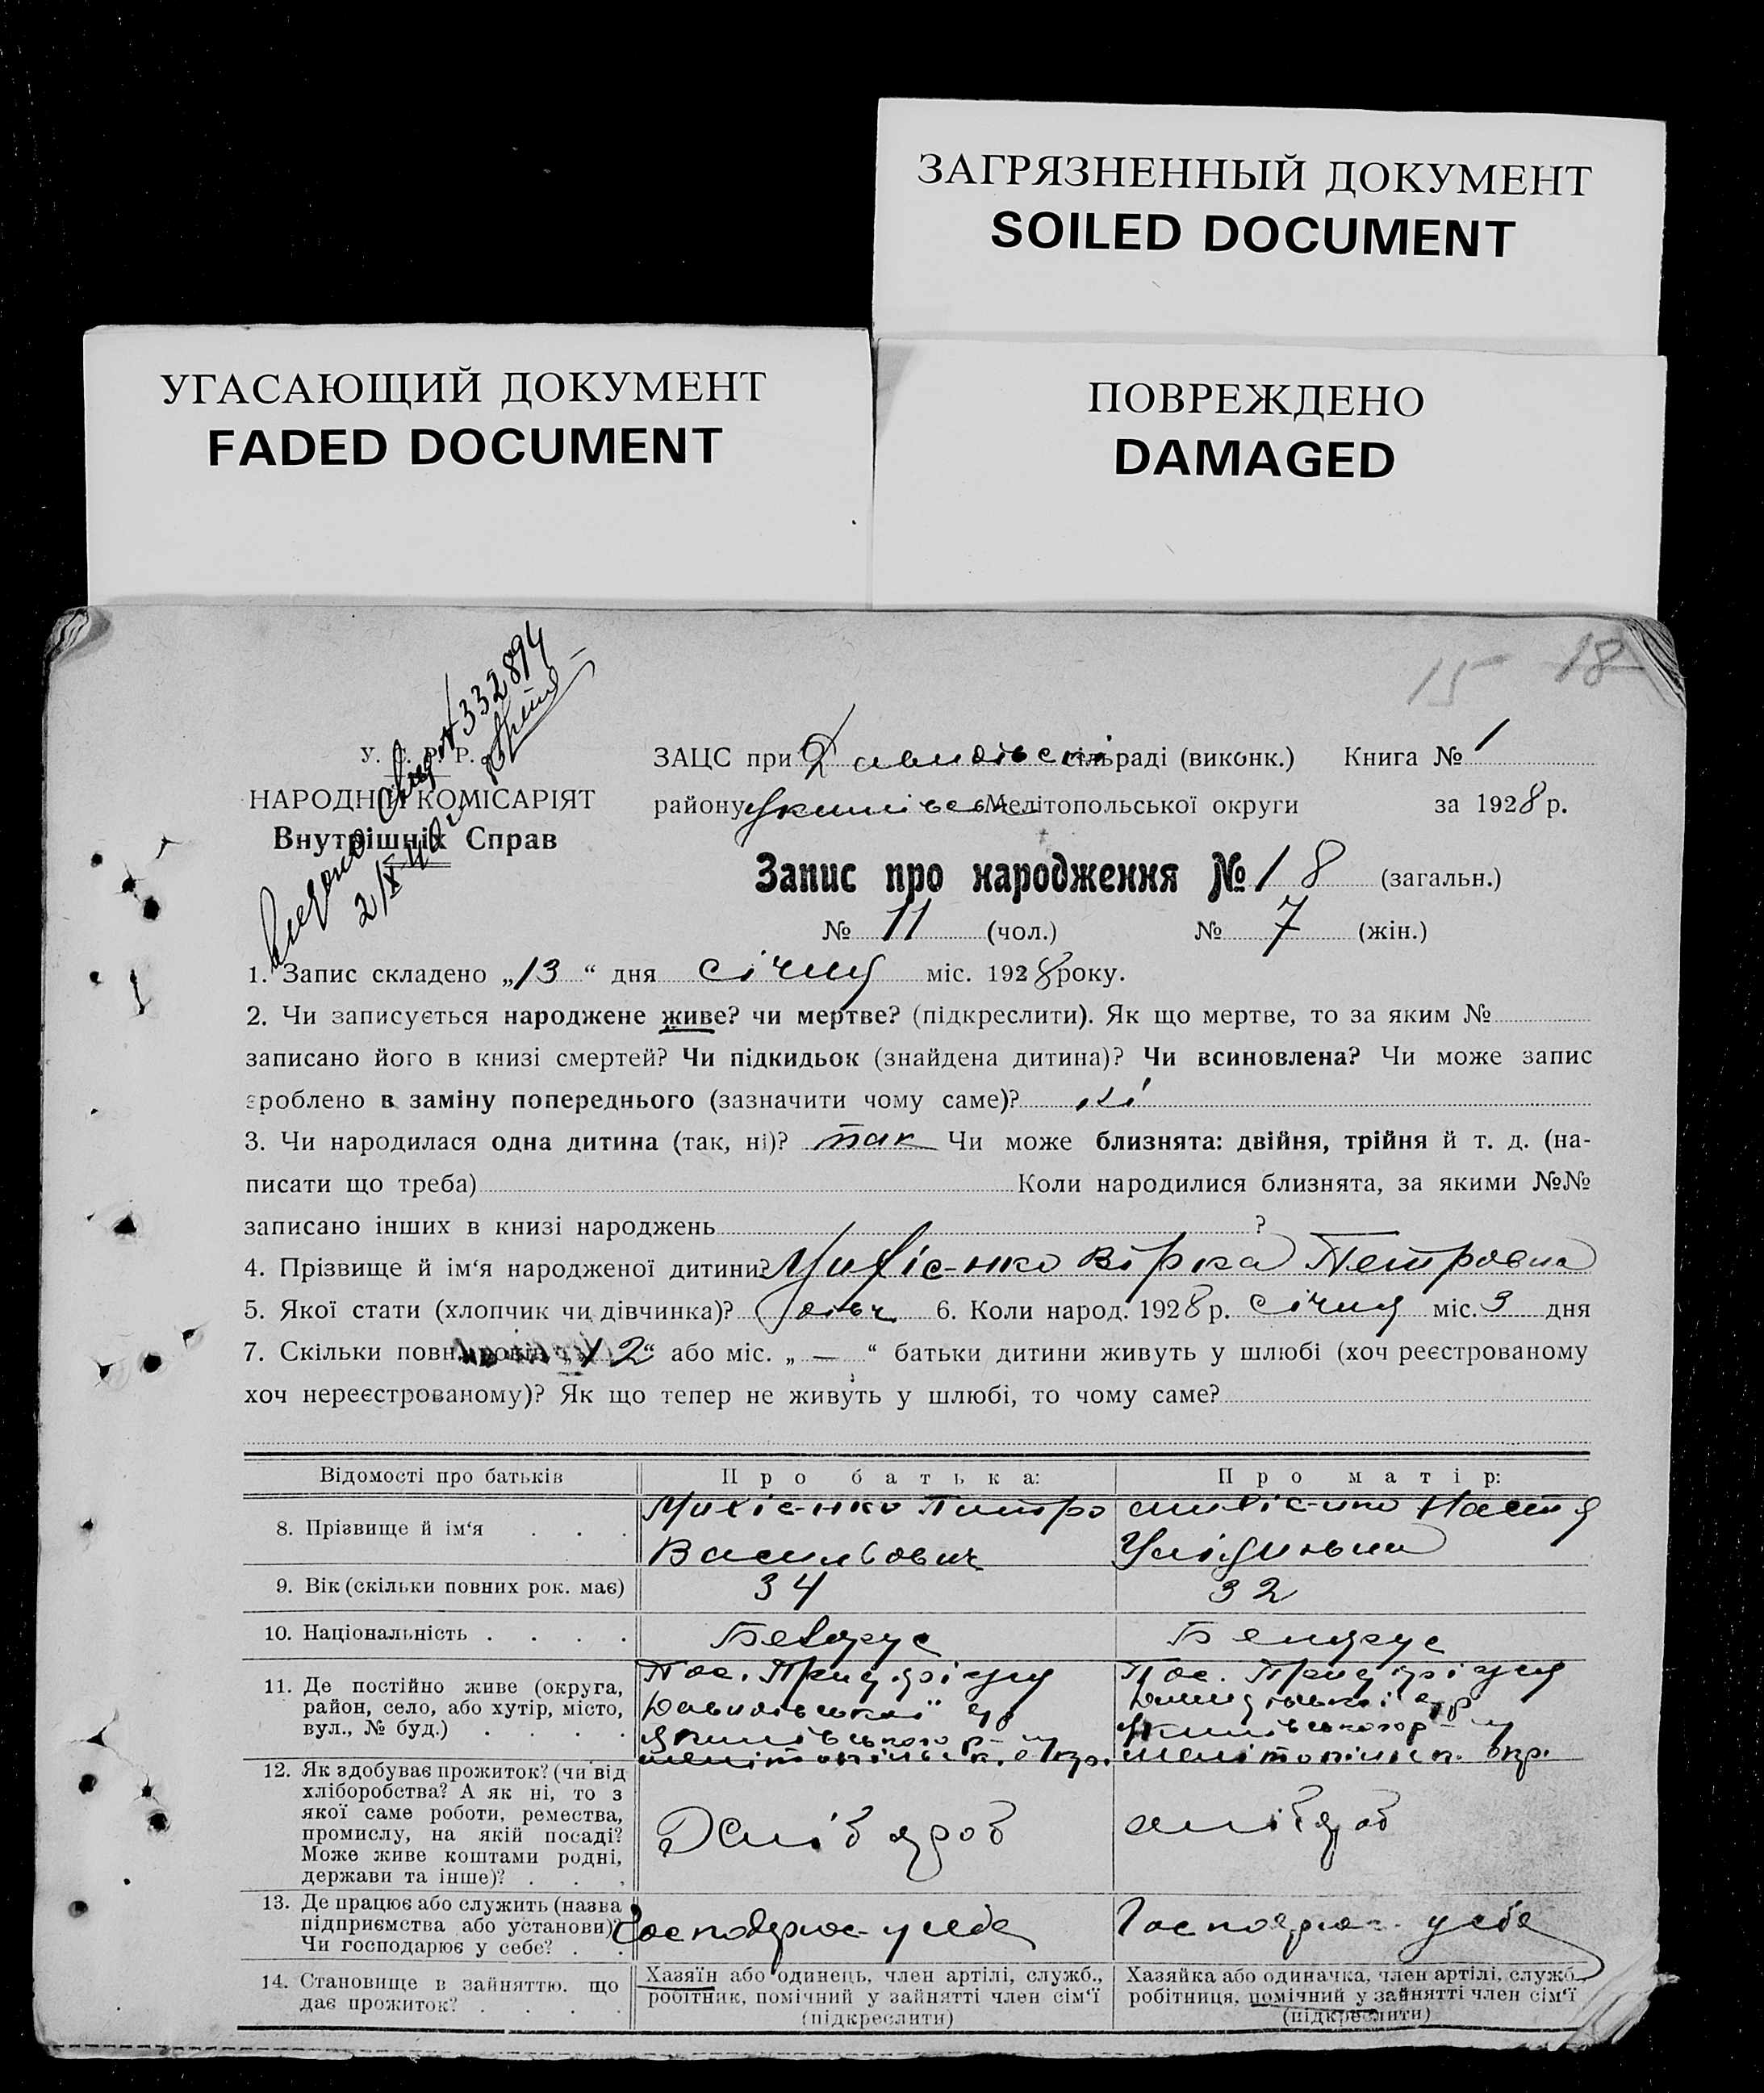 ЗАГРЯЗНЕННЫЙ ДОКУМЕНТ
SOILED DOCUMENT
УГАСАЮЩИЙ ДОКУМЕНТ
FADED DOCUMENT
ПОВРЕЖДЕНО
DAMAGED
15 18
№ 332894
2/X 40
У. С. Р. Р.
НАРОДНІЙ КОМІСАРІЯТ
Внутрішніх Справ
ЗАЦС при сільраді (виконк.) Книга № 1
району Мелітопольської округи за 1928 р.
Запис про народження № 18 (загальн.)
№ 11 (чол.) № 7 (жін.)
1. Запис складено „13“ дня січня міс. 1928 року.
2. Чи записується народжене живе? чи мертве? (підкреслити). Як що мертве, то за яким №
записано його в книзі смертей? Чи підкидьок (знайдена дитина)? Чи всиновлена? Чи може запис
зроблено в заміну попереднього (зазначити чому саме)? ні
3. Чи народилася одна дитина (так, ні)? так Чи може близнята: двійня, трійня й т. д. (на-
писати що треба) Коли народилися близнята, за якими №№
записано інших в книзі народжень ?
4. Прізвище й ім‘я народженої дитини? Вірка Петровна
5. Якої стати (хлопчик чи дівчинка)? дівч 6. Коли народ. 1928 р. січня міс. 3 дня
7. Скільки повн. років „12“ або міс. „ — “ батьки дитини живуть у шлюбі (хоч реєстрованому
хоч нереєстрованому)? Як що тепер не живуть у шлюбі, то чому саме?
Відомості про батьків Про батька: Про матір:
8. Прізвище й ім‘я . . . Питро Настя
Васильович
9. Вік (скільки повних рок. має) 34 32
10. Національність . . . . Белорус Белорус
11. Де постійно живе (округа,
район, село, або хутір, місто,
вул., № буд.) . . . .
Пос. Пос.
Давидівської
Якимівського р-ну Якимівського р-ну
мелітопільськ. окр. мелітопільск. окр.
12. Як здобуває прожиток? (чи від
хліборобства? А як ні, то з
якої саме роботи, ремества,
промислу, на якій посаді?
Може живе коштами родні,
держави та інше)? . . .
Хлібороб хлібороб
13. Де працює або служить (назва
підприємства або установи)?
Чи господарює у себе? . .
Господарює у себе Господарює у себе
14. Становище в зайняттю, що
дає прожиток? . . . .
Хазяїн або одинець, член артілі, служб.,
робітник, помічний у зайнятті член сім‘ї
(підкреслити)
Хазяйка або одиначка, член артілі, служб.,
робітниця, помічний у зайнятті член сім‘ї
(підкреслити)